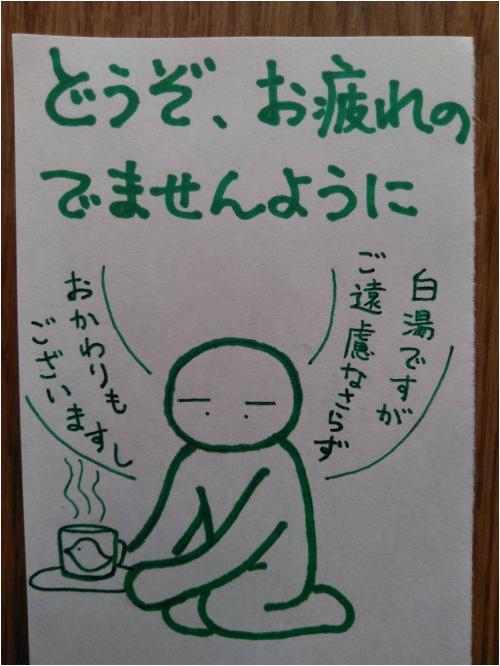 どうぞ、お疲れの
でませんように
白湯ですが
ご遠慮なさらず
おかわりも
ございますし